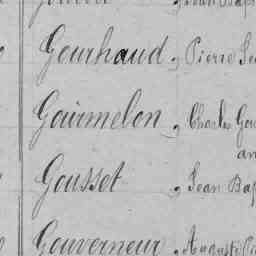 Geurhaud, Pierre
Gairmelon, Charles
an
Gousset, Jean Bap
Gouverneur, Auguste